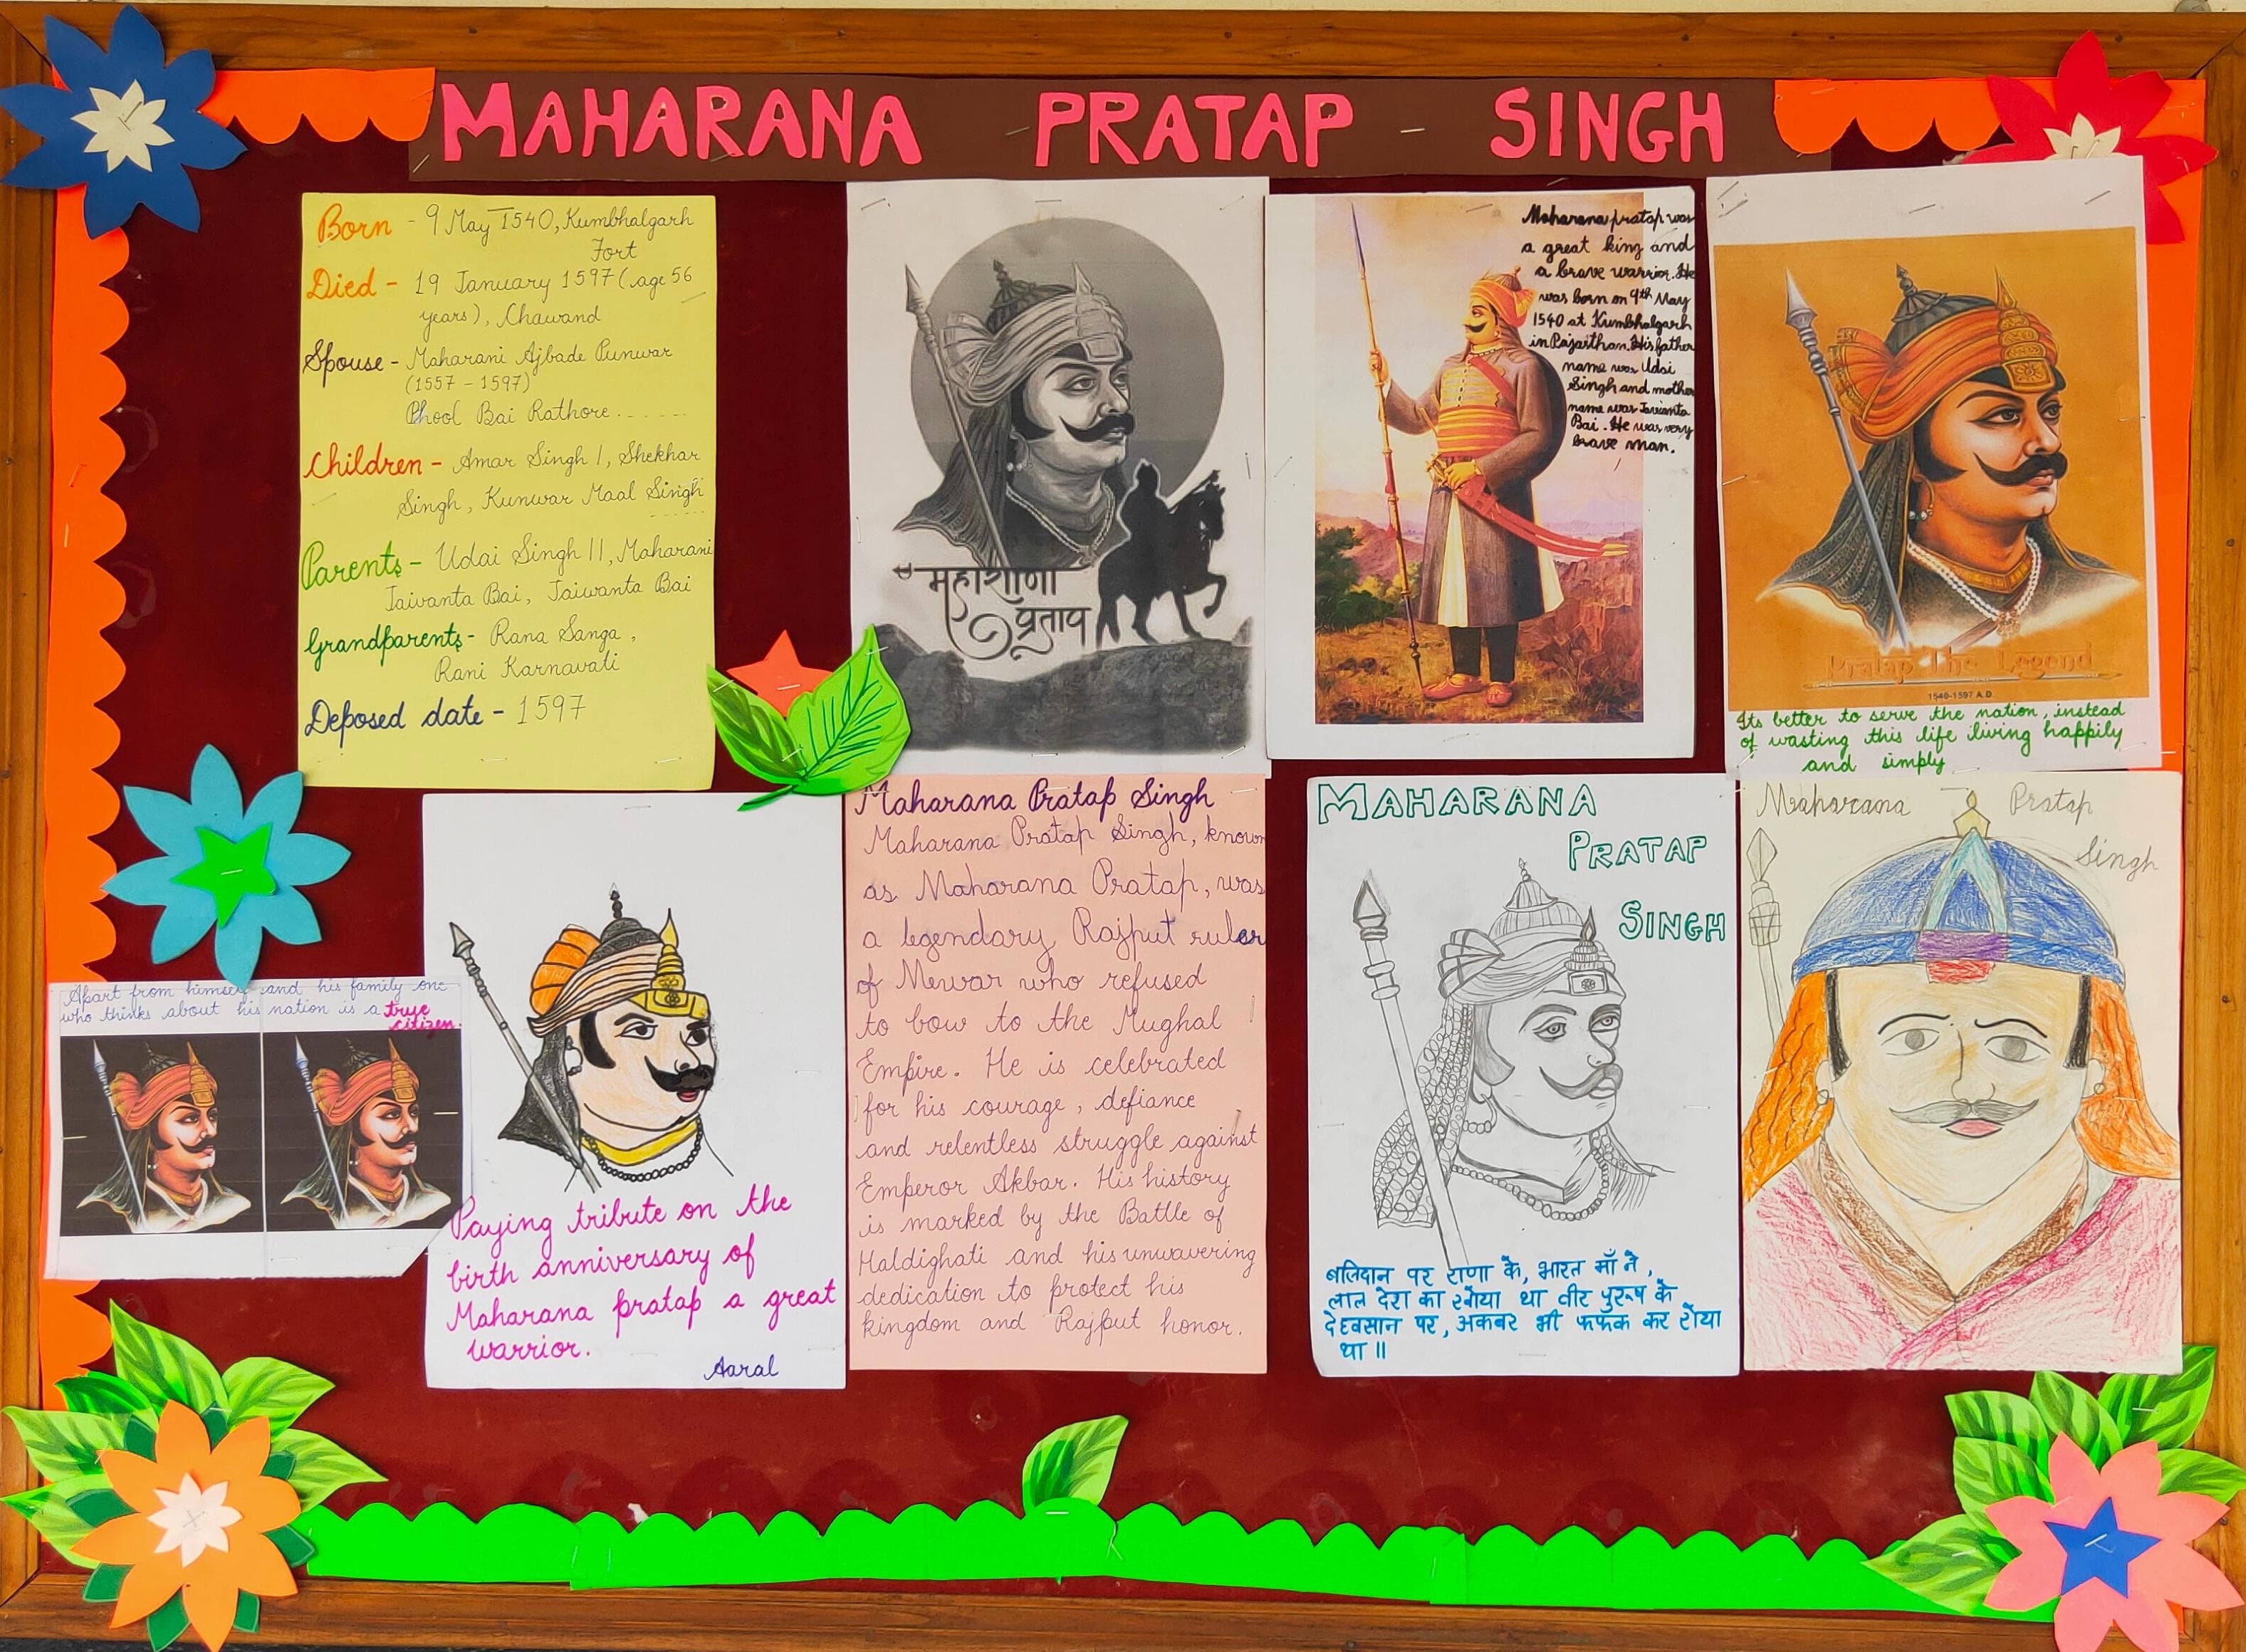 MAHARANA PRATAP - SINGH
Born - 9 May 1540, Kumbhalgarh
Fort
Died - 19 January 1597 (age 56
years), Chawand
Spouse - Maharani Ajbade Punwar
(1557 - 1597)
Phool Bai Rathore.....
Children - Amar Singh I, Shekhar
Singh, Kunwar Maal Singh
Parents - Udai Singh II, Maharani
Jaivanta Bai, Jaiwanta Bai
Grandparents - Rana Sanga,
Rani Karnavati
Deposed date - 1597
महाराणा
प्रताप
Maharana pratap was
a great king and
a brave warrior. He
was born on 9th May
1540 at Kumbhalgarh
in Rajasthan. His father
name was Udai
Singh and mother
name was Javianta
Bai. He was very
brave man.
Pratap The Legend
1540-1597 A.D
Its better to serve the nation, instead
of wasting this life living happily
and simply
Apart from himself and his family one
who thinks about his nation is a true
citizen.
Paying tribute on the
birth anniversary of
Maharana pratap a great
warrior.
Aaral
Maharana Pratap Singh
Maharana Pratap Singh, known
as Maharana Pratap, was
a legendary Rajput ruler
of Mewar who refused
to bow to the Mughal
Empire. He is celebrated
for his courage, defiance
and relentless struggle against
Emperor Akbar. His history
is marked by the Battle of
Haldighati and his unwavering
dedication to protect his
kingdom and Rajput honor.
MAHARANA
PRATAP
SINGH
बलिदान पर राणा के, भारत माँ ने,
लाल देश का खोया था वीर पुरूष के
देहवसान पर, अकबर भी फफक कर रोया
था ॥
Maharana Pratap
Singh